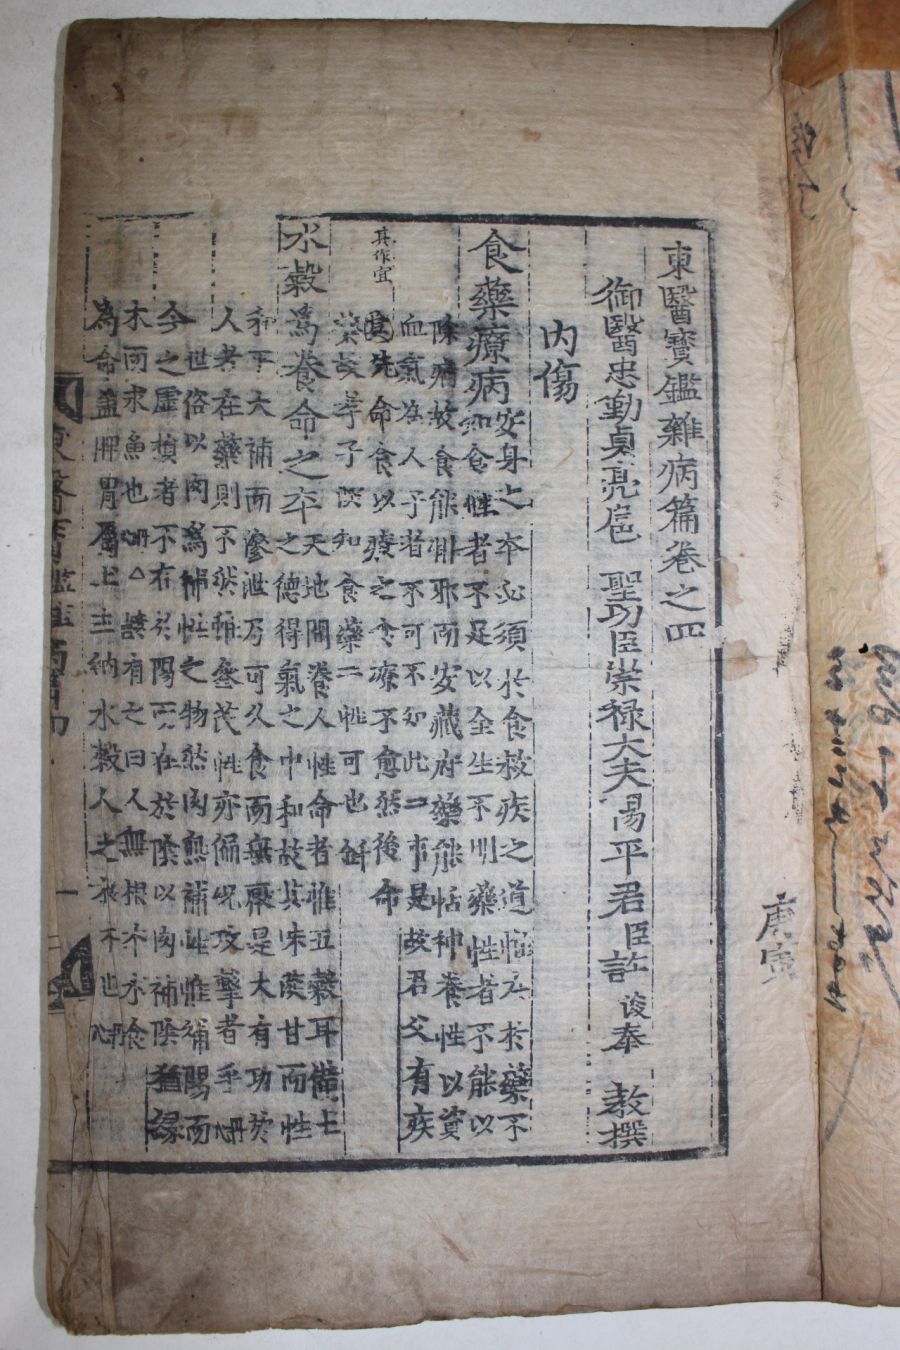 東醫寶鑑雜病篇卷之四
御醫忠勤貞亮扈 聖功臣崇祿大夫陽平君臣許 浚奉 敎撰
內傷
食藥療病
安身之本必須於食救疾之道惟在於藥不
知食性者不足以全生不明藥性者不能以
除病故食能排邪而安藏府藥能恬神養性以資
血氣爲人子者不可不知此二事是故君父有疾
其作宜
先命食以療之食療不愈然後命
藥故孝子深知食藥二性可也
水穀爲養命之本
天地間養人性命者惟五穀耳備土
之德得氣之中和故其味淡甘而性
和平大補而滲泄乃可久食而無厭是大有功於
人者在藥則不然雖參芪性亦偏況攻擊者乎
世俗以肉爲補性之物然肉無補性惟補陽而
今之虛損者不在於陽而在於陰以肉補陰猶緣
木而求魚也 有之曰人無根本水食
爲命盖脾胃屬土主納水穀人之根本也
庚寅